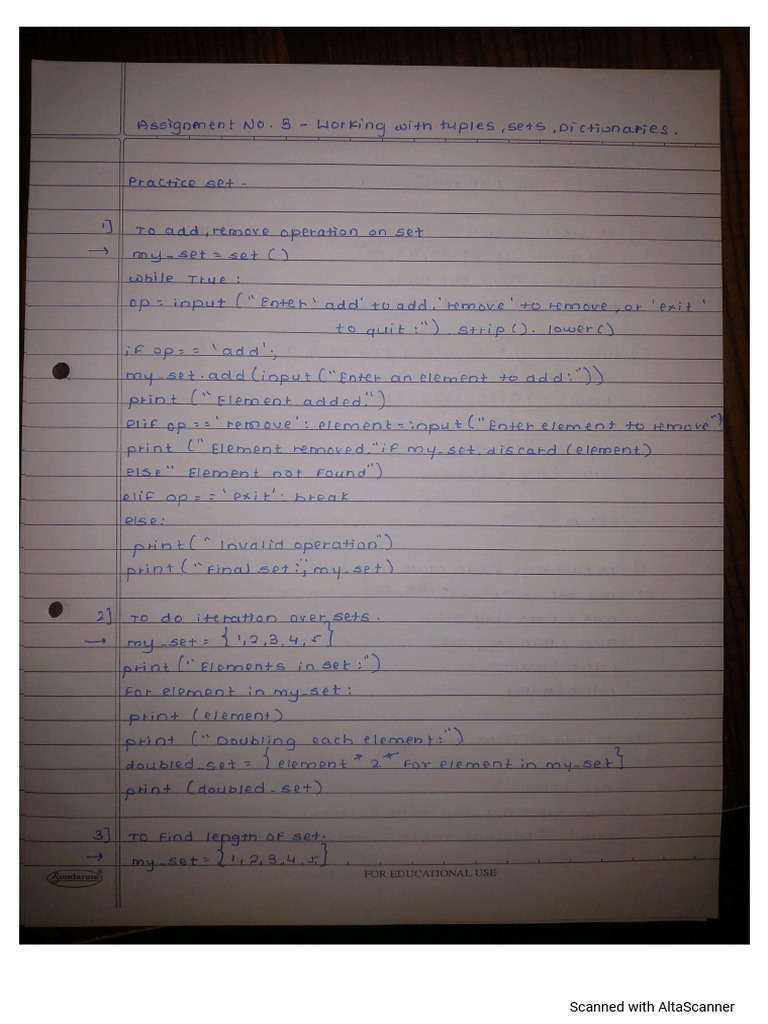 Assignment No. 3 - Working with tuples, sets, Dictionaries.
Practice set -
1] To add, remove operation on set
→ my_set = set ()
while True :
op = input ("Enter 'add' to add, 'remove' to remove, or 'exit'
to quit :") . strip(). lower()
if op = = 'add' :
my_set.add(input("Enter an element to add:"))
print ("Element added.")
elif op == 'remove' : element = input("Enter element to remove")
print ("Element removed." if my_set.discard (element)
else " Element not found")
elif op = = 'exit' : break
else:
print("Invalid operation")
print("Final set:", my_set)
2] To do iteration over sets.
→ my_set = {1,2,3,4,5}
print ("Elements in set:")
for element in my_set :
print (element)
print ("Doubling each element:")
doubled_set = {element * 2 * for element in my_set}
print (doubled_set)
3] To find length of set.
→ my_set = {1,2,3,4,5}
Sundaram
FOR EDUCATIONAL USE
Scanned with AltaScanner